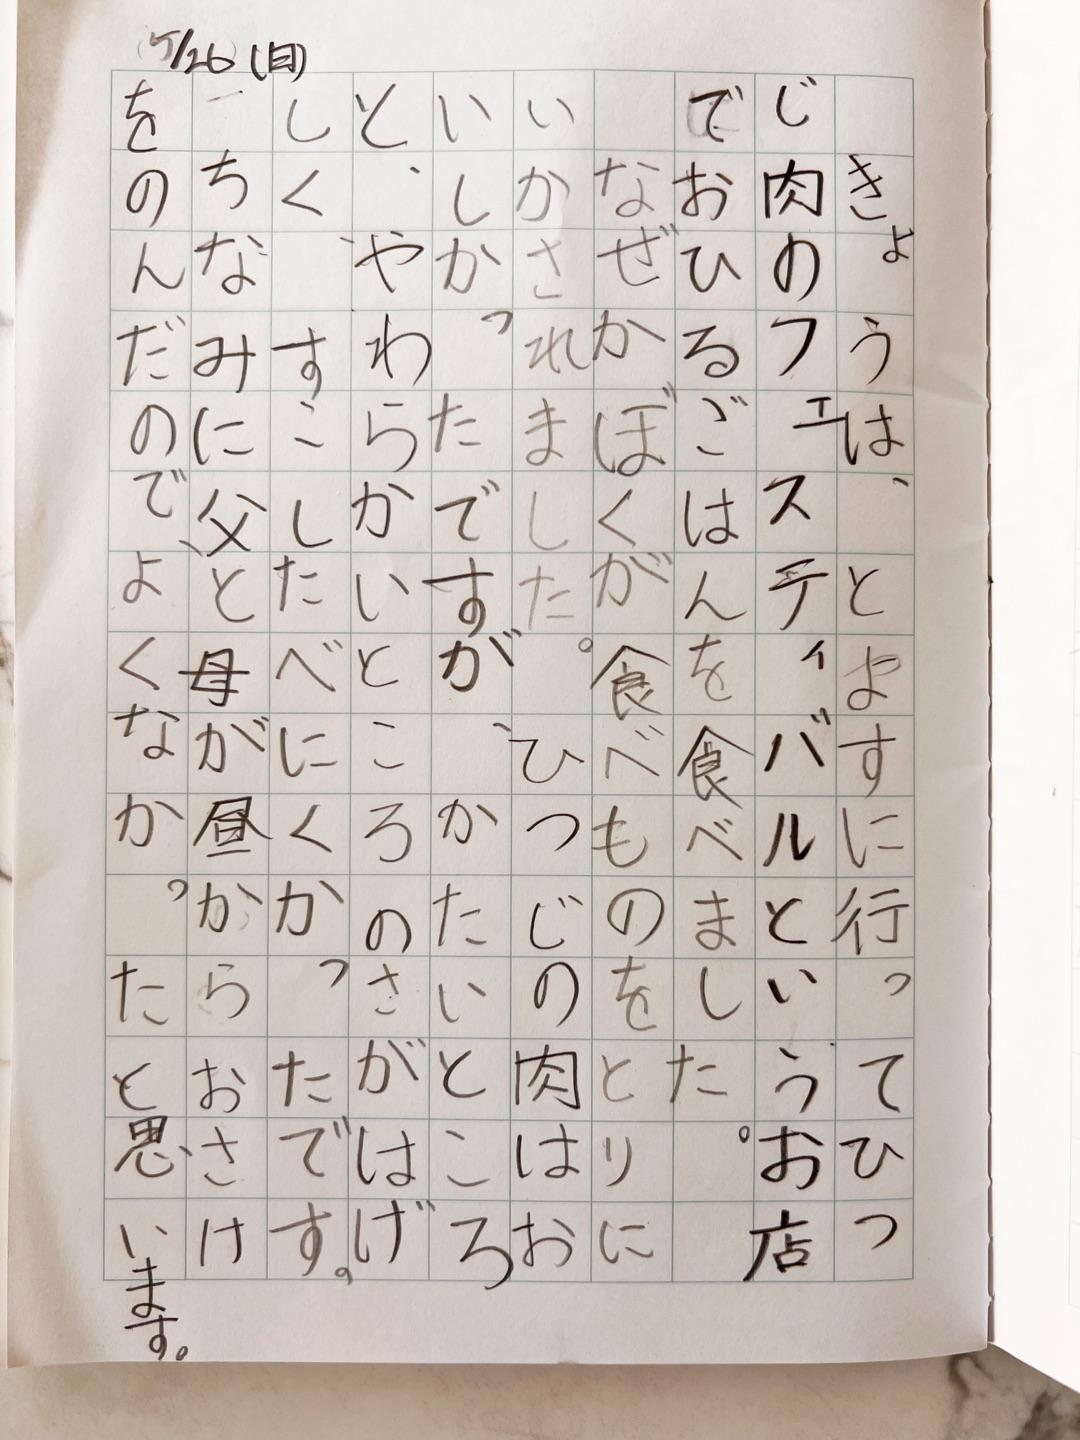 5/26(日)
きょうは、とよすに行ってひつ
じ肉のフェスティバルというお店
でおひるごはんを食べました。
なぜかぼくが食べものをとりに
いかされました。ひつじの肉はお
いしかったですが、かたいところ
と、やわらかいところのさがはげ
しく、すこしたべにくかったです。
ちなみに、父と母が昼からおさけ
をのんだのでよくなかったと思います。